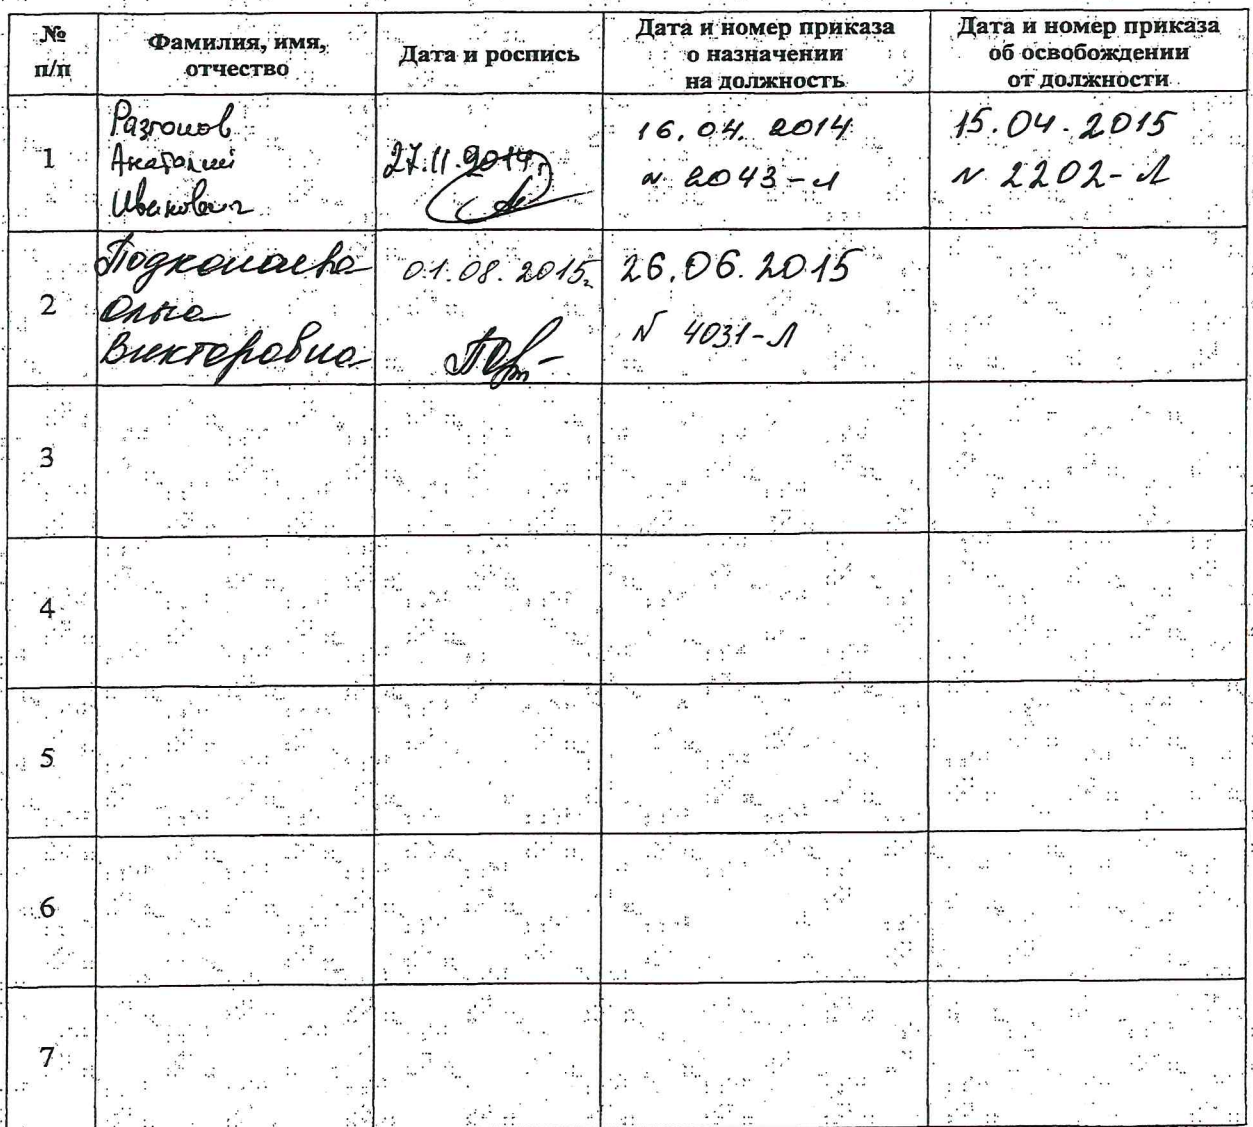 №
п/п
Фамилия, имя,
отчество
Дата и роспись
Дата и номер приказа
о назначении
на должность
Дата и номер приказа
об освобождении
от должности
1
Разгонов
Анатолий
Иванович
27.11.2014г.
16.04.2014
№ 2043-л
15.04.2015
№ 2202-Л
2
Подкопаева
Ольга
Викторовна
01.08.2015г.
26.06.2015
№ 4031-Л
3
4
5
6
7